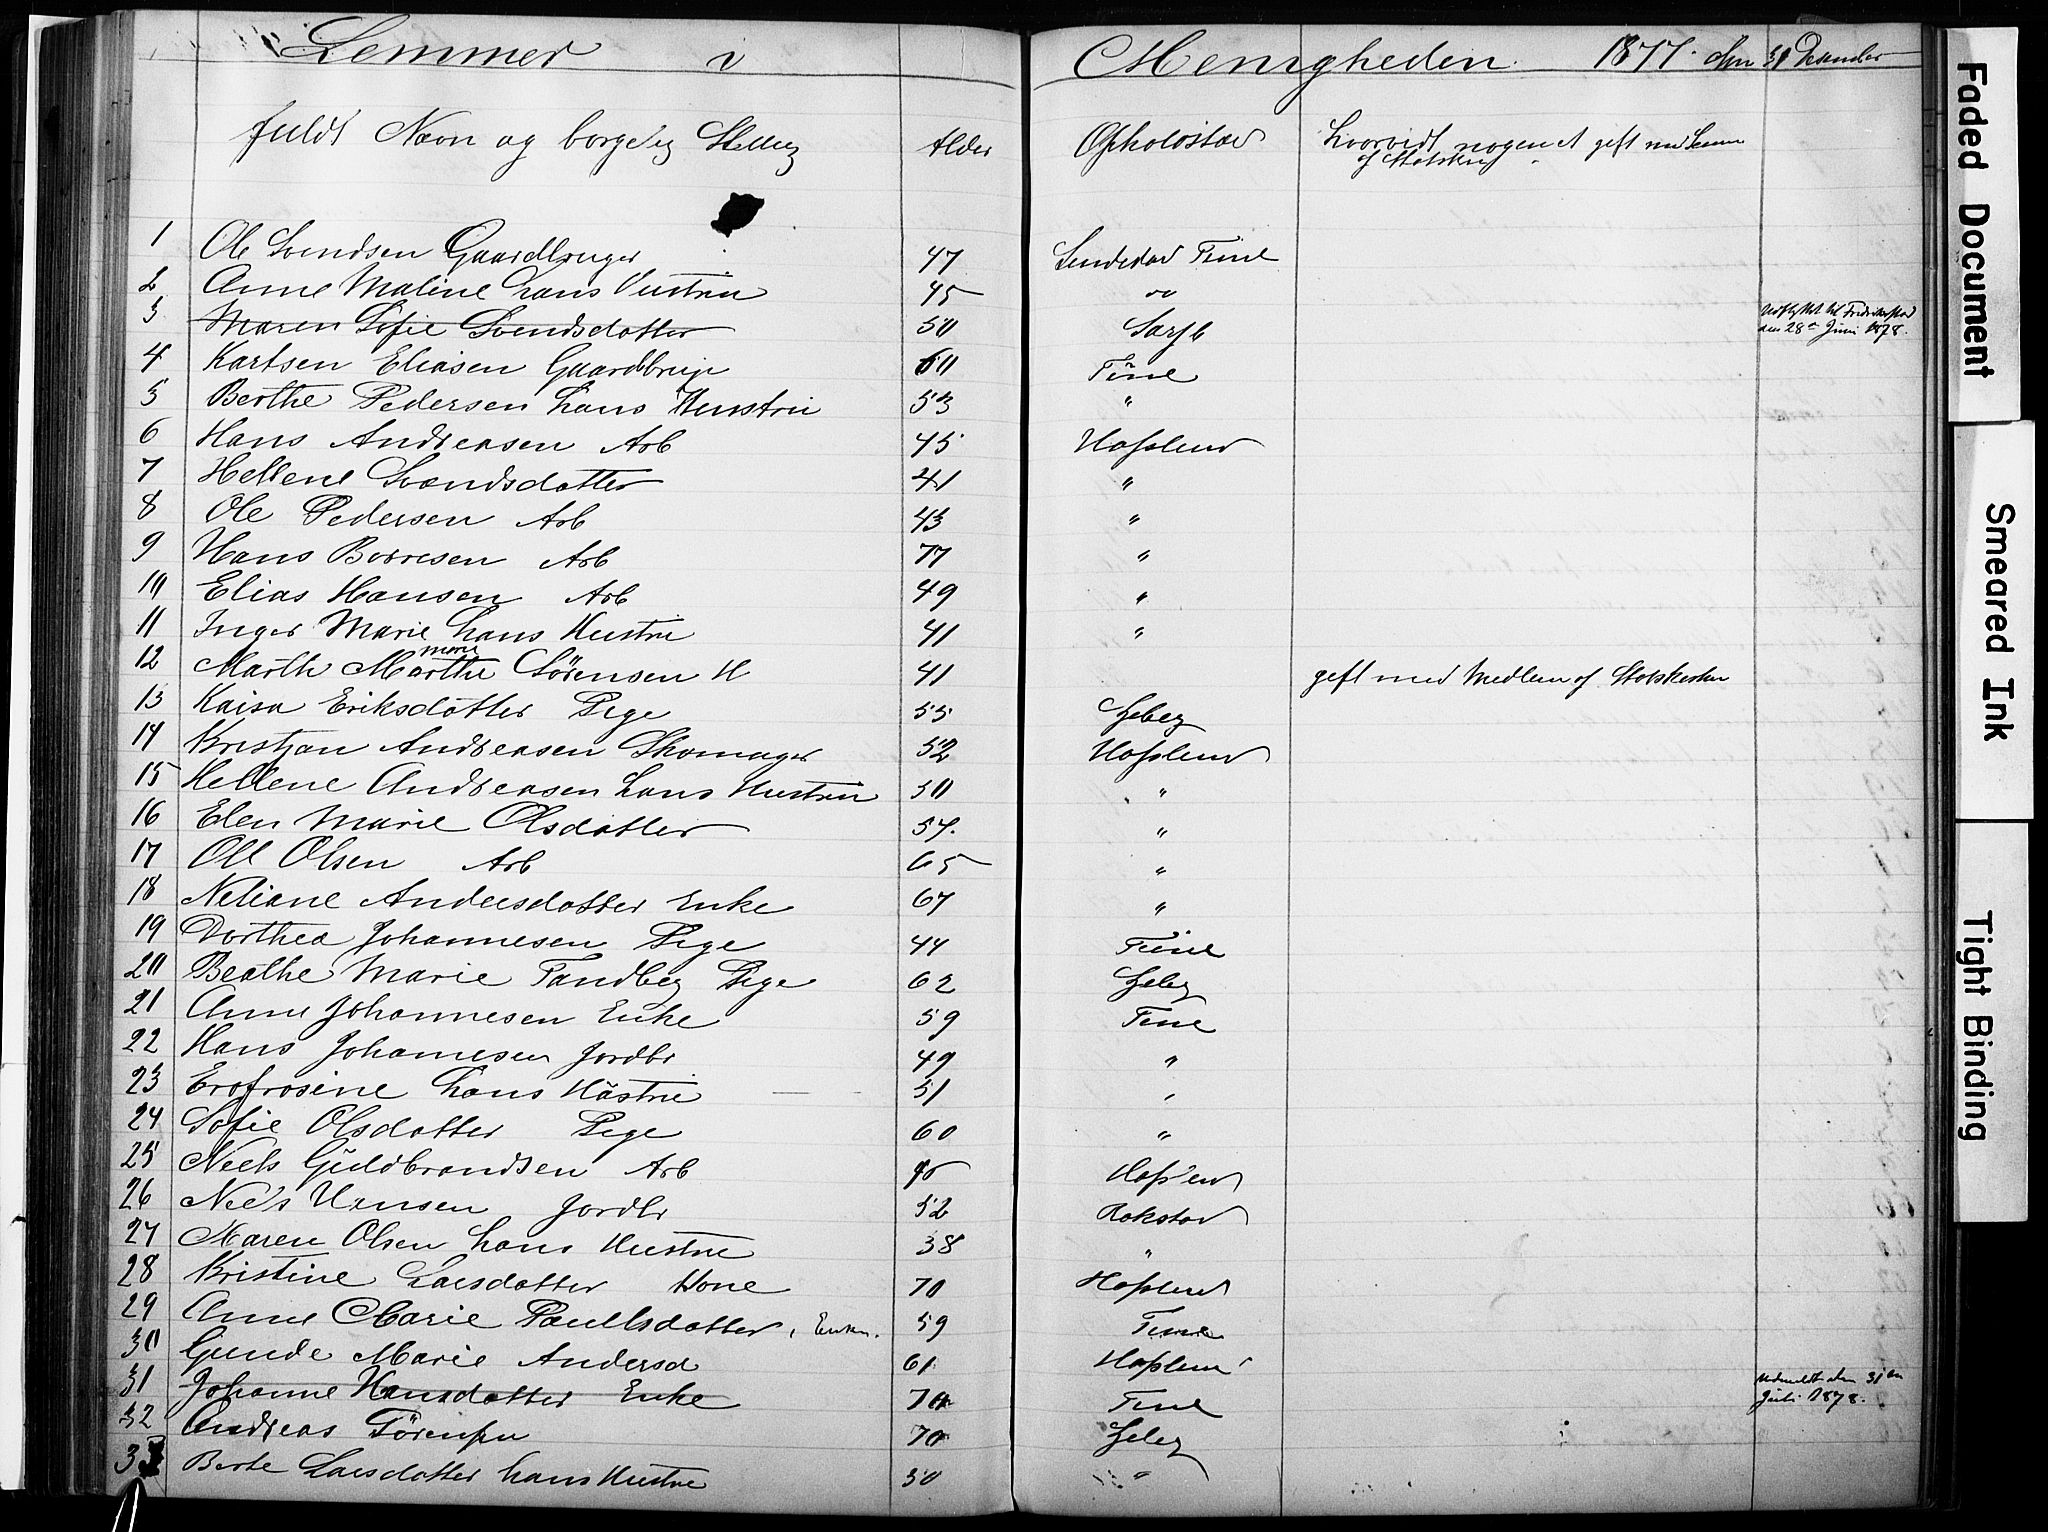 Lemmer i Menigheden 1877. den 31 Desember
fuldt Navn og borgelig Stelling Alder Opholdstad Hvorvidt nogen et gift med Lem
af Statskirk
1 Ole Svendsen Gaardbruger 47 Sundedad Tune
2 Anne Maline hans Hustru 45 "
3 Maren Sofie Svendsdatter 50 Sarpb Udflyttet til Fredrikstad
den 28de Juni 1878.
4 Kartsen Eliasen Gaardbrug 60 Tune
5 Berthe Pedersen hans Hustru 53 "
6 Hans Andreasen Arb 45 Hafslund
7 Hellene Svendsdatter 41 "
8 Ole Pedersen Arb 43 "
9 Hans Borresen Arb 77 "
10 Elias Hansen Arb 49 "
11 Inger Marie hans Hustru 41 "
marie
12 Marth Marthe Sörensen H 41 gift med Medlem af Statskirken
13 Kaisa Eriksdatter Pige 55
14 Kristjan Andreasen Skomager 52 Hafslund
15 Hellene Andreasen hans Hustru 50 "
16 Elen Marie Olsdatter 57. "
17 Ole Olsen Arb 65 "
18 Neliane Andersdatter Enke 67 "
19 Dorthea Johannesen Pige 44 Tune
20 Beathe Marie Tandberg Pige 62
21 Anne Johannesen Enke 59 Tune
22 Hans Johannesen Jordbr 49 "
23 Erofrosine hans Hüstru 51 "
24 Sofie Olsdatter Pige 60 "
25 Neels Guldbrandsen Arb Hafslund
26 Neels Hansen Jordbr 52 Rokstad
27 Maren Olsen hans Hustru 38 "
28 Kristine Larsdatter Kone 70 Hafslund
29 Anne Marie Paullsdatter, Enken. 59 Tune
30 Gunde Marie Andersd 61 Hafslund
31 Johanne Hansdatter Enke 70 Tune Udmeldt den 31te
Juli 1878.
32 Andreas Törensen 70
33 Berte Larsdatter hans Hustru 50 "
Faded Document
Smeared Ink
Tight Binding